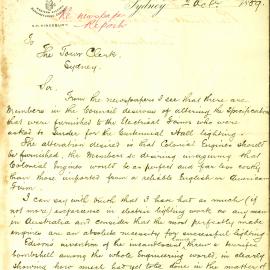 Sydney 2 Oct. 1889.
Re newspaper
Report
S.H. KINGSBURY
To
The Town Clerk,
Sydney.
Sir,
From the newspapers I see that there are
Members in the Council desirous of altering the Specification
that were furnished to the Electrical Firms who were
asked to Tender for the Centennial Hall lighting.
The alteration desired is that Colonial Engines should
be furnished, the Members so desiring imagining that
Colonial Engines would be as perfect and far less costly
than those imported from a reliable English or American
Firm.
I can say with truth that I have had as much (if
not more) experience in electric lighting work as any man
in Australia and consider that the most perfectly made
engines are an absolute necessity for successful lighting.
Edison's invention of the incandescent threw a terrific
bombshell among the whole engineering world, in clearly
showing how much had yet to be done in the matter